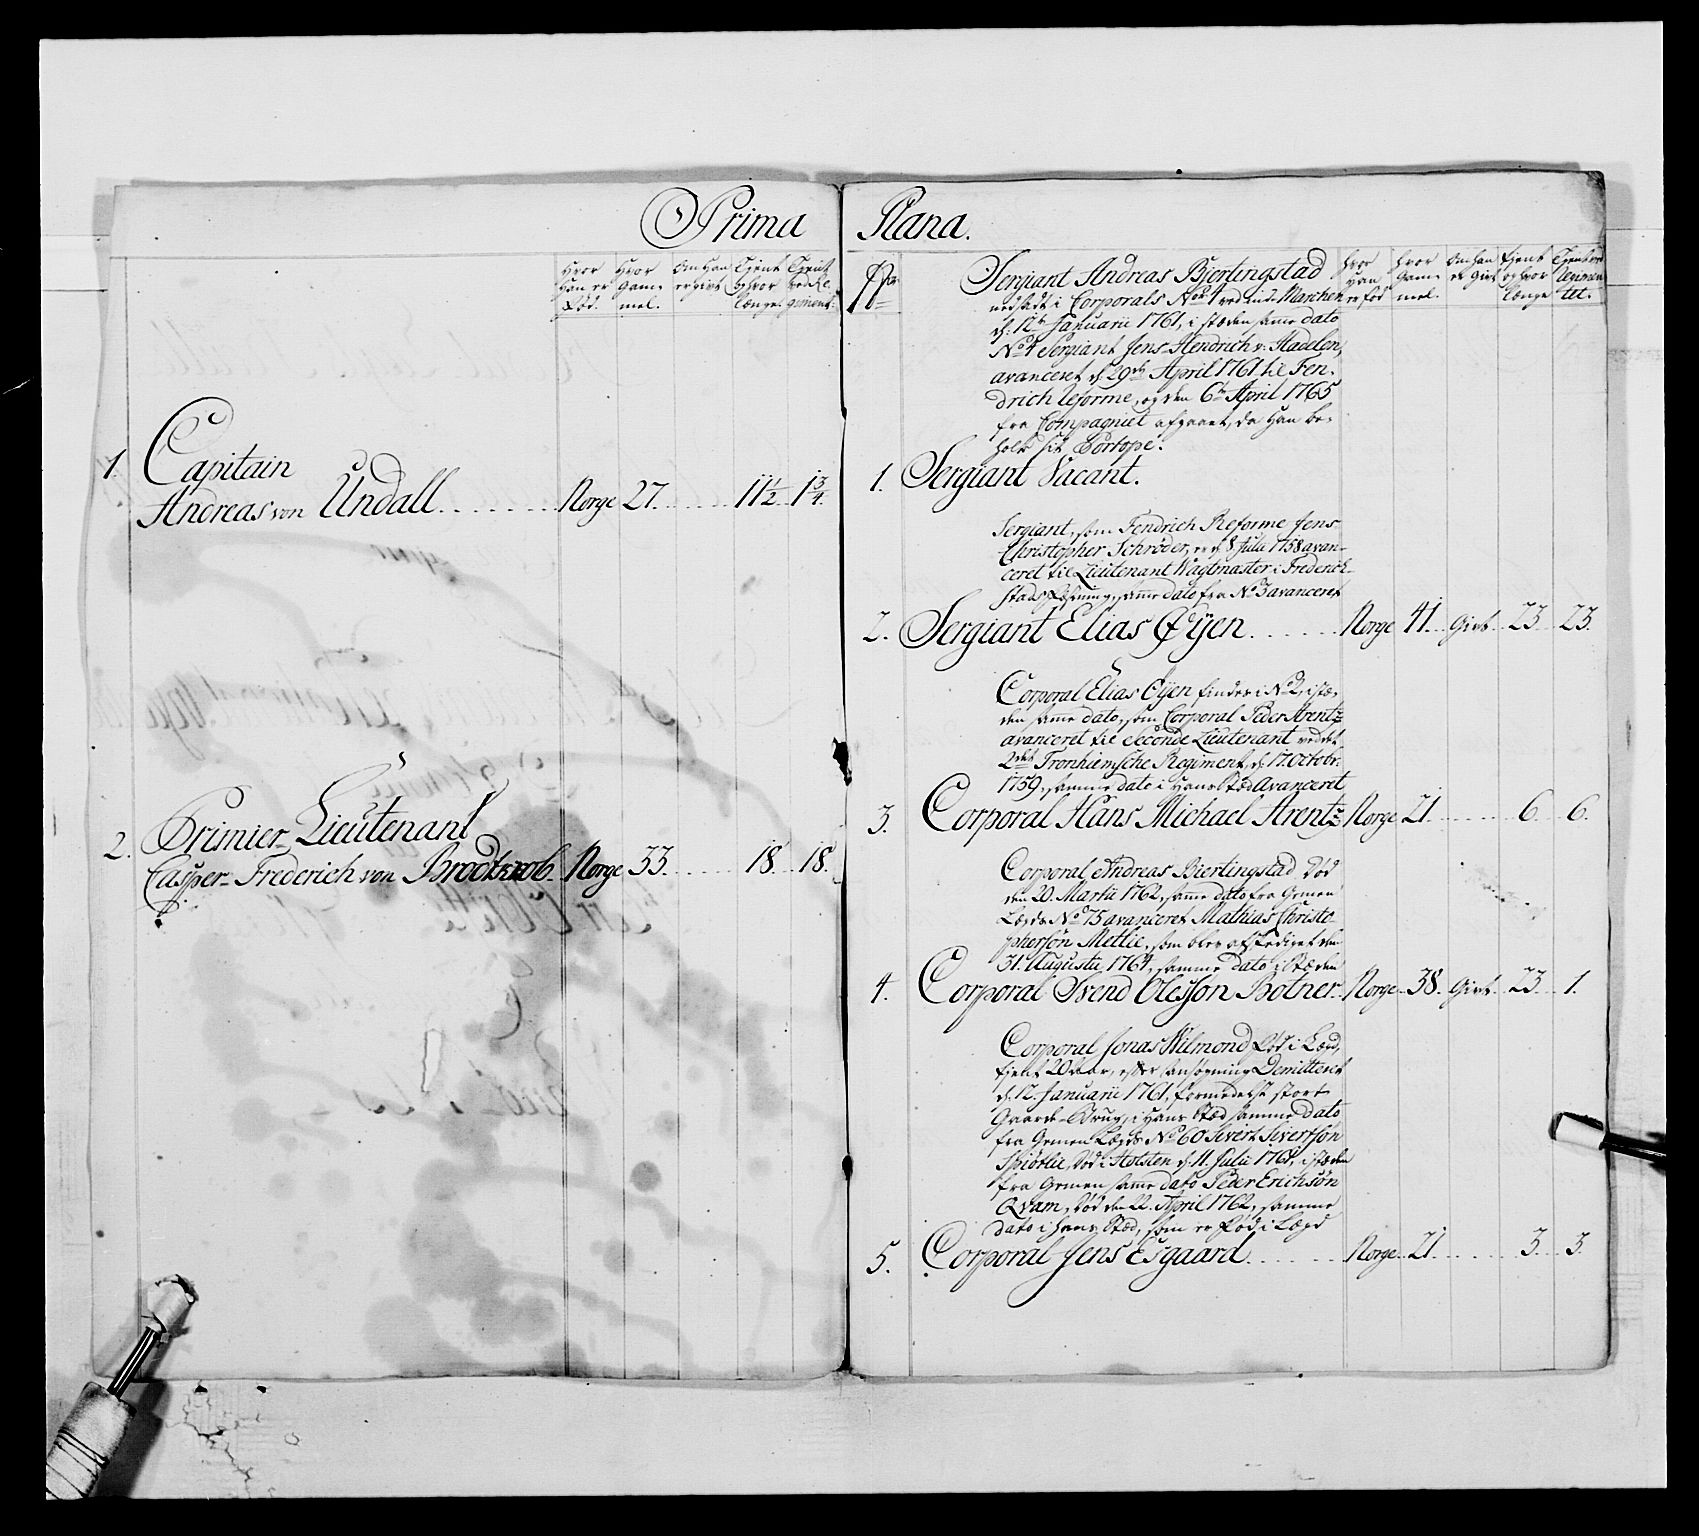 Prima Plana.
Hvor Han er Fød.
Hvor Gammel.
Om Han er givt
Tjent og hvor længe
Tjent ved Regiment:
1. Capitain
Andreas von Undall. Norge 27. 11 1/2 1 3/4.
2. Primier-Lieutenant
Casper-Frederich von Brock Norge 33. 18. 18.
No
Hvor Han er fød
Hvor Gammel.
Om Han er Givt
Tjent og hvor længe
Tjent ved Regimentet.
Sergiant Andreas Bjertingstad
nedsadt i Corporals No 4 ved Marchen
d: 12te Januarii 1761, i stæden samme dato
No 4 Sergiant Jens Hendrich v: Hadelen,
avanceret d: 29de April 1761 til Fen-
drich Reforme, og den 6te April 1765
fra Compagniet afgaaet, da Han be-
holt sit Portope.
1. Sergiant Vacant.
Sergiant, som Fendrich Reforme Jens
Christopher Schrøder, er d: 8 Julii 1758 avan-
ceret til Lieutenant Wagtmæster i Frederich-
stads Fæstning, samme dato fra No 3 avanceret
2. Sergiant Elias Øyen Norge 41. Givt 23 23.
Corporal Elias Øyen findes i No 2, i stæ-
den samme dato, som Corporal Peder Arentz
avanceret til Seconde Lieutenant ved det
2det Tronhiemsche Regiment, d: 17 Octobr:
1759, samme dato i Hans stæd Avanceret
3. Corporal Hans Michael Arentz Norge 21. 6. 6.
Corporal Andreas Biertingstad Død
den 20. Martii 1762, samme dato fra Gemen
Lægds No 75 avanceret Mathias Christo-
phersøn Metlie, som blev afskediget den
31. Augustii 1764, samme dato i Stæden
4. Corporal Svend Olessøn Botner Norge 38. Givt 23 1.
Corporal Jonas Wilmond Fød i Lægd,
tjent 20 Aar, efter Ansøgning Demitteret
d: 12. Januarii 1761, formedelst stort
Gaards-Brug, i Hans Stæd samme Dato
fra Gemen Lægds No 60 Sivert Sivertsøn
Spiøtlie, Død i Holsten d: 11. Julii 1761, i stæden
fra Gemen samme dato Peder Erichsøn
Qvam, Død den 22. April 1762, samme
Dato i hans Stæd, som er Fød i Lægd
5. Corporal Jens Esgaard Norge 21. 3. 3.